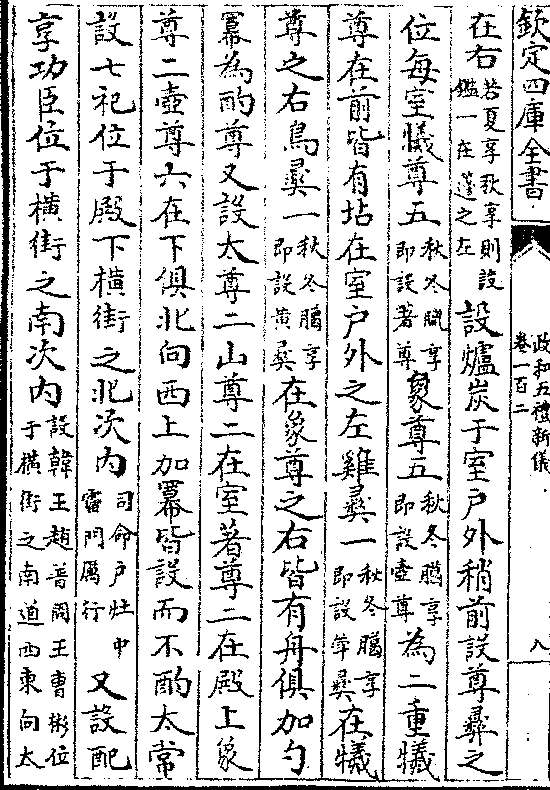 欽定四庫全書
政和五禮新儀
卷一百二
八
在右若夏享秋享則設鑑一在籩之左設爐炭于室戶外稍前設尊彝之
位每室犧尊五秋冬臘享即設著尊象尊五秋冬臘享即設壺尊為二重犧
尊在前皆有坫在室戶外之左雞彝一秋冬臘享即設斝彝在犧
尊之右鳥彝一秋冬臘享即設黃彝在象尊之右皆有舟俱加勺
冪為酌尊又設太尊二山尊二在室著尊二在殿上象
尊二壺尊六在下俱北向西上加冪皆設而不酌太常
設七祀位于殿下橫街之北次內司命戶灶中霤門厲行又設配
享功臣位于橫街之南次內設韓王趙普周王曹彬位于橫街之南道西東向太